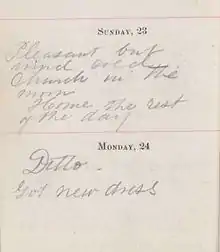 SUNDAY, 23
Pleasant but
wind cold
Church in the
morn
Home the rest
of the day
MONDAY, 24
Ditto.
Got new dress